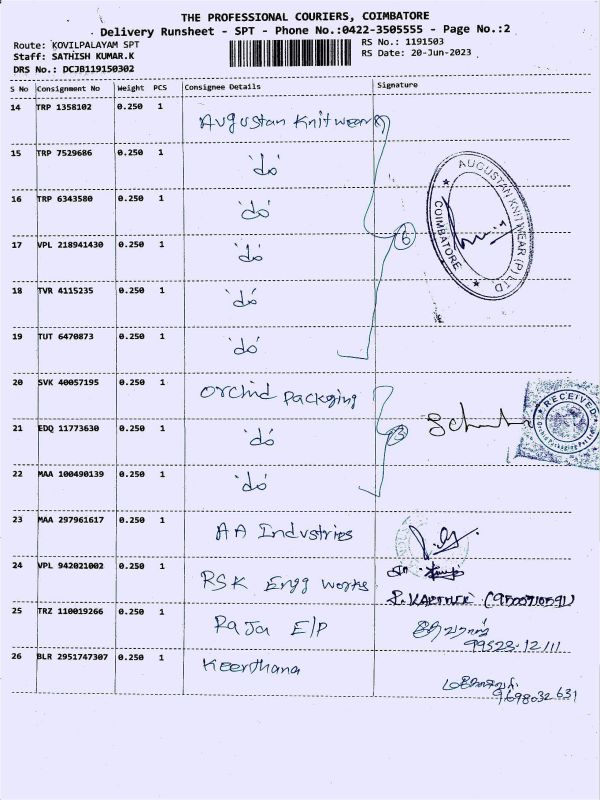 THE PROFESSIONAL COURIERS, COIMBATORE
Delivery Runsheet - SPT - Phone No.:0422-3505555 - Page No.:2
Route: KOVILPALAYAM SPT
RS No.: 1191503
Staff: SATHISH KUMAR.K
RS Date: 20-Jun-2023
DRS No.: DCJB119150302
S No Consignment No Weight PCS Consignee Details Signature
14 TRP 1358102 0.250 1 Augustan Knitwear
15 TRP 7529686 0.250 1 'do'
16 TRP 6343580 0.250 1 'do'
17 VPL 218941430 0.250 1 'do' 6
AUGUSTAN KNITWEAR (P) LTD
COIMBATORE
18 TVR 4115235 0.250 1 'do'
19 TUT 6470873 0.250 1 'do'
20 SVK 40057195 0.250 1 Orchid Packging
21 EDQ 11773630 0.250 1 'do' 3
RECEIVED
22 MAA 100490139 0.250 1 'do'
23 MAA 297961617 0.250 1 AA Industries
24 VPL 942021002 0.250 1 RSK Engg Works
25 TRZ 110019266 0.250 1 Raja E/P
26 BLR 2951747307 0.250 1 Keerthana
9698032631